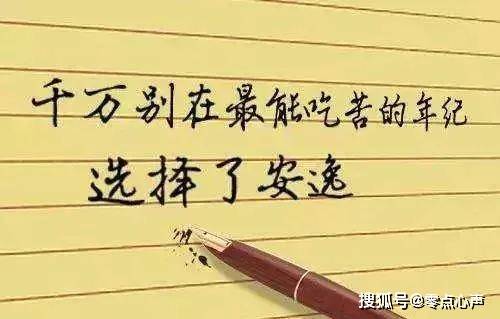 千万别在最能吃苦的年纪
选择了安逸
搜狐号@零点心声